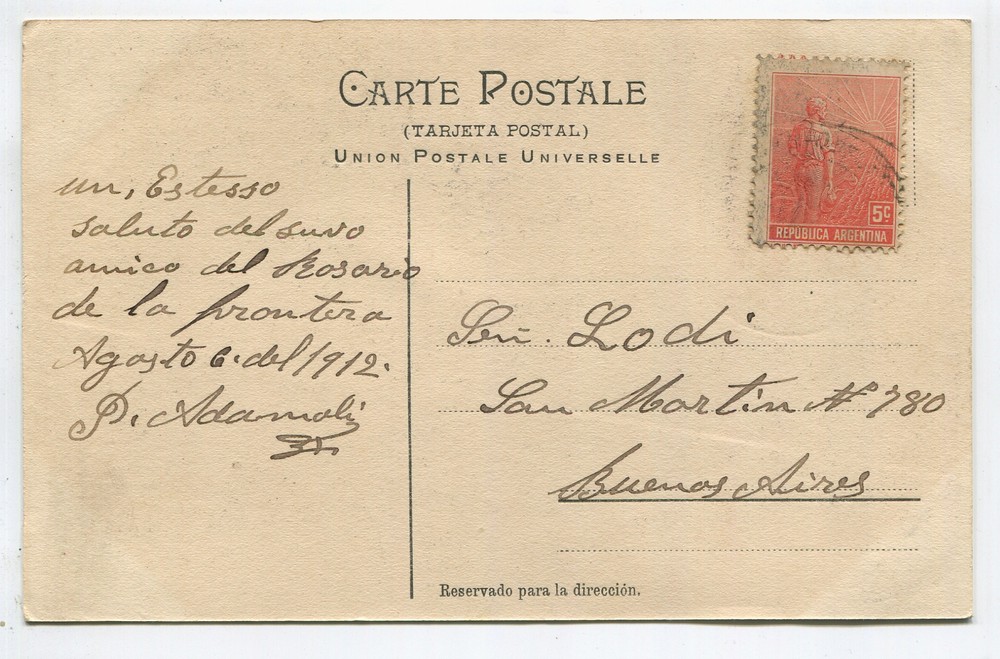 CARTE POSTALE
(TARJETA POSTAL)
UNION POSTALE UNIVERSELLE
5c
REPÚBLICA ARGENTINA
un, Estesso
saluto del suvo
amico del Rosario
de la frontera
Agosto 6. del 1912.
P. Adamoli
Señ. Lodi
San Martin Nº 780
Buenos Aires
Reservado para la dirección.